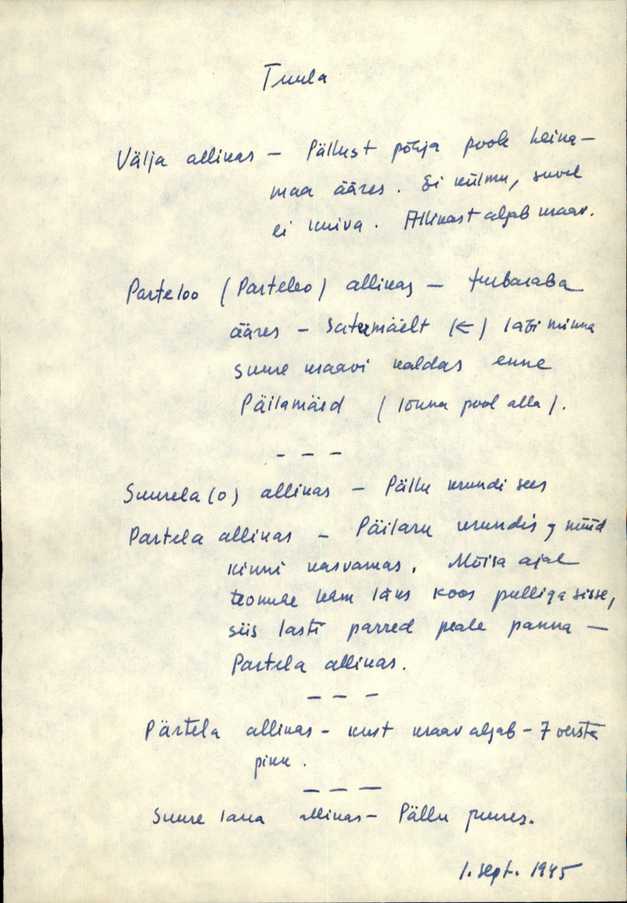 Tuula
Välja allikas — Pällust põhja poole heina-
maa ääres. Ei külmu, suvel
ei kuiva. Allikast algab kraav.
Parteloo (Parteleo) allikas — turbaraba
ääres — Satermäelt (←) läbi minna
suure kraavi kaldas enne
Päilamäed (lõuna pool alla).
- - -
Suurela(o) allikas — Pällu krundi sees
Partela allikas — Päilaru krundis, nüüd
kinni kasvamas. Mõisa ajal
teomae läks koos pulliga sisse,
siis lasti parred peale panna —
Partela allikas.
- - -
Pärtela allikas - kust kraav algab - 7 versta
pikk.
- - -
Suure laua allikas - Pällu juures.
1. sept. 1945